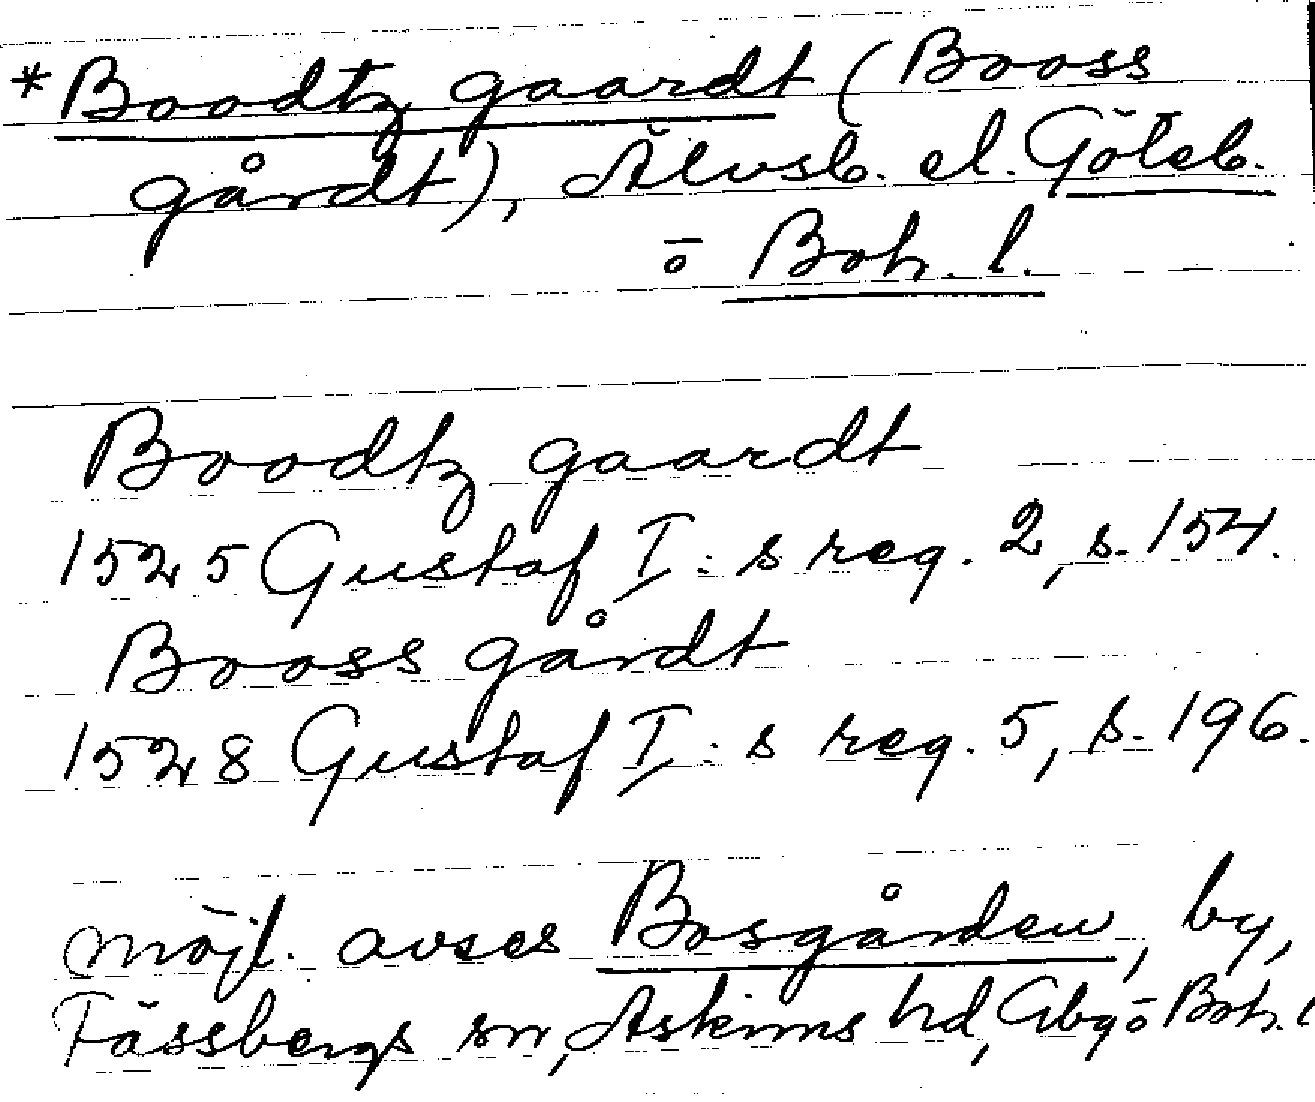 *Boodtz gaardt (Booss
gårdt), Älvsb. el. Göteb.
o Boh. l.
Boodtz gaardt
1525 Gustaf I:s reg. 2, s. 154.
Booss gårdt
1528 Gustaf I:s reg. 5, s. 196.
möjl. avses Bosgården, by,
Fässbergs sn, Askims hd, Gbg o Boh. l